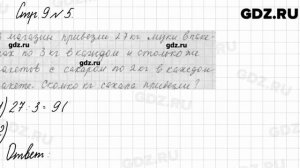 GDZ.RU
Стр. 9 № 5.
В магазин привезли 27 кг муки в паке-
ках по 3 кг в каждом и столько же
пакетов с сахаром по 2 кг в каждом
пакете. Сколько кг сахара привезли?
1) 27 : 3 = 9 (
2)
Ответ:
GDZ.RU